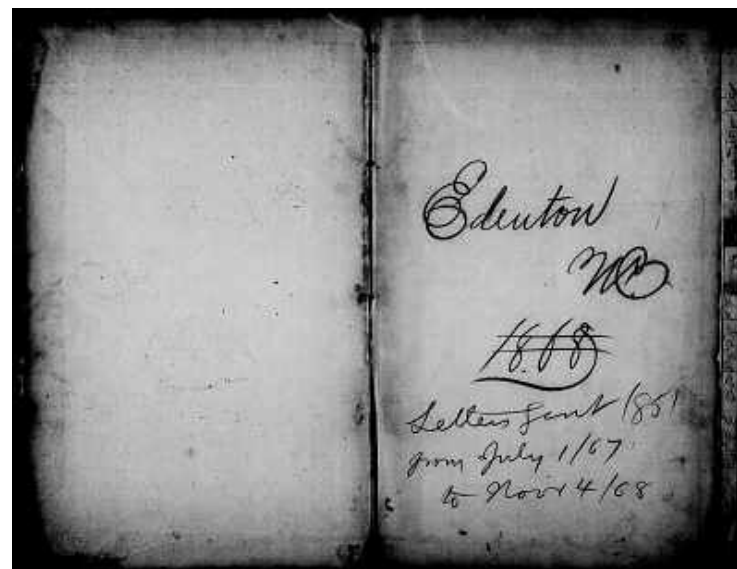 Edenton
N.C.
1868
Letters Sent 1867
from July 1/67
to Novr 4/68